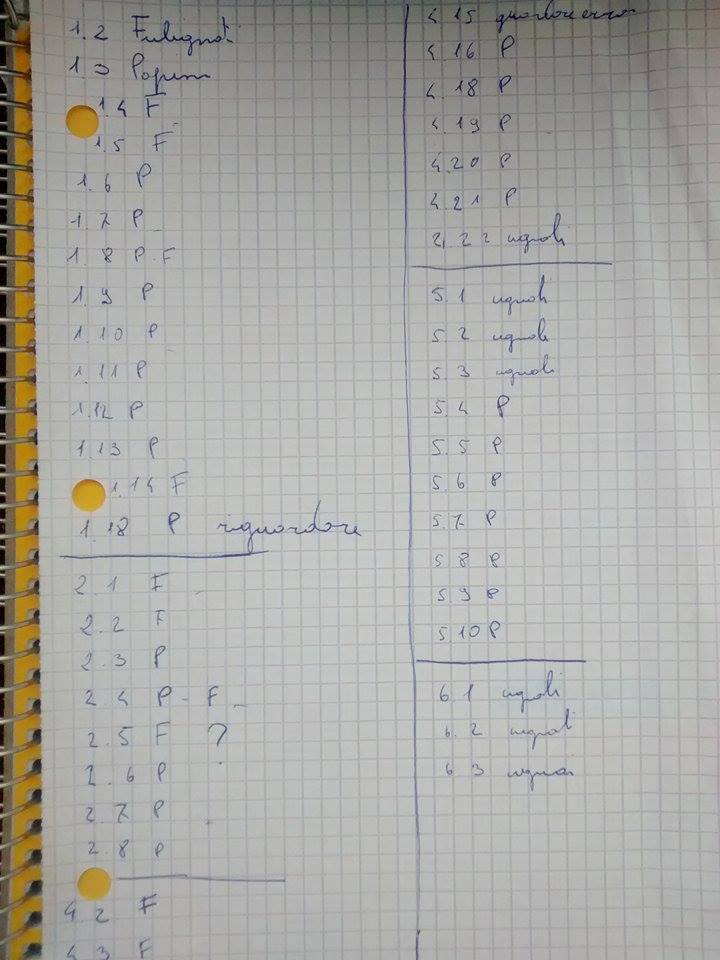 1.2 Fulignati
1.3 Papini
1.4 F
1.5 F
1.6 P
1.7 P
1.8 P-F
1.9 P
1.10 P
1.11 P
1.12 P
1.13 P
1.14 F
1.18 P riguardare
2.1 F
2.2 F
2.3 P
2.4 P-F
2.5 F ?
2.6 P
2.7 P
2.8 P
4.2 F
4.3 F
4.15
4.16 P
4.18 P
4.19 P
4.20 P
4.21 P
4.22 uguali
5.1 uguali
5.2 uguali
5.3 uguali
5.4 P
5.5 P
5.6 P
5.7 P
5.8 P
5.9 P
5.10 P
6.1 uguali
6.2 uguali
6.3 uguali